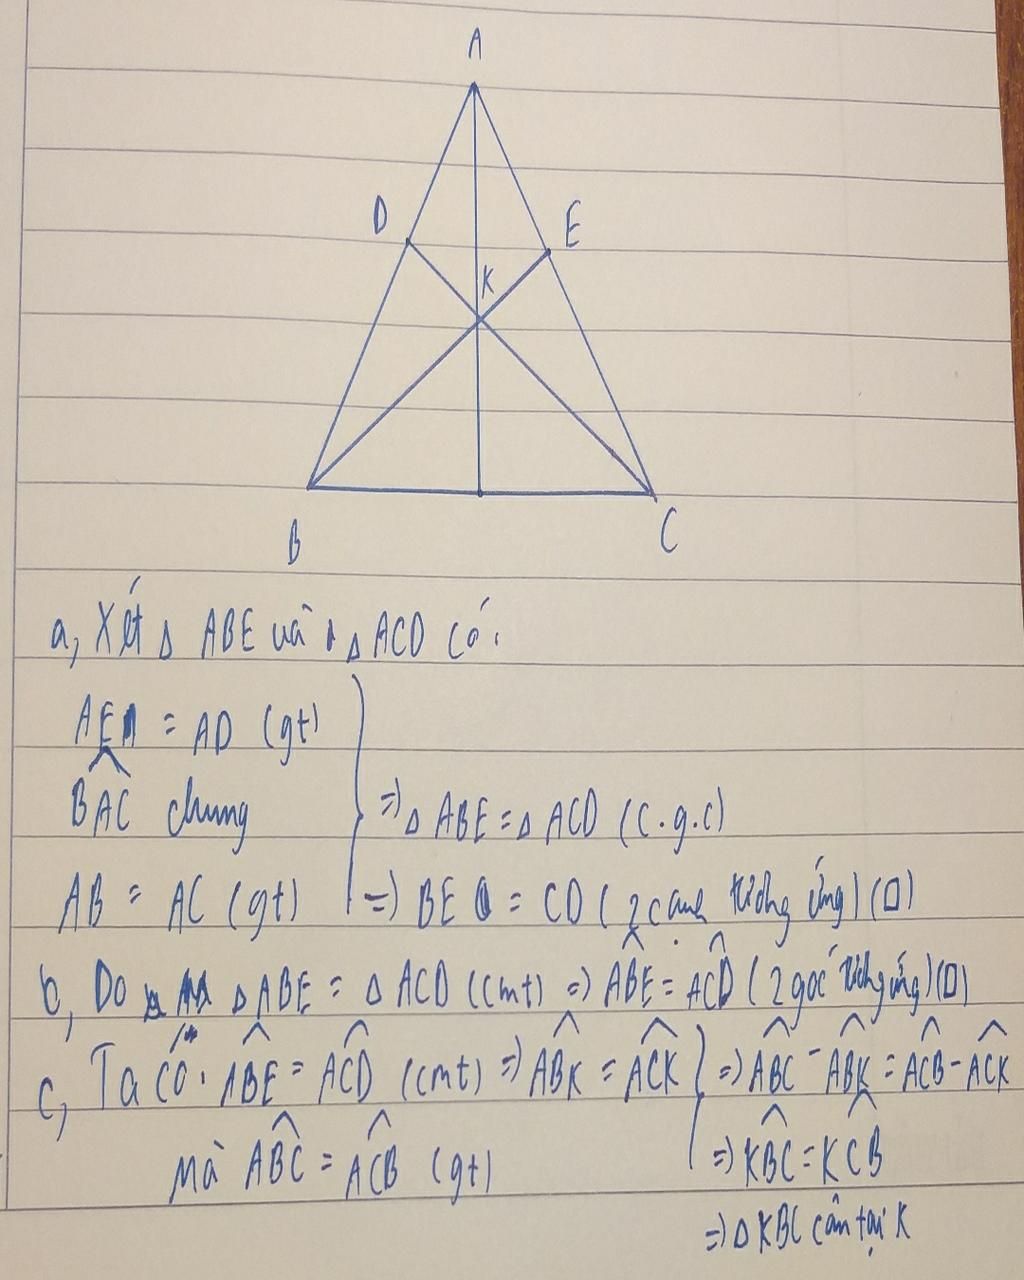 A
D
E
K
B
C
a, Xét Δ ABE và Δ ACD có:
AE = AD (gt)
BAC chung
=) Δ ABE = Δ ACD (c.g.c)
AB = AC (gt)
=) BE = CD (2 cạnh tương ứng) (□)
b, Do Δ ABE = Δ ACD (cmt) =) ABE = ACD (2 góc tương ứng) (□)
c, Ta có: ABE = ACD (cmt) =) ABK = ACK =) ABC - ABK = ACB - ACK
Mà ABC = ACB (gt) =) KBC = KCB
=) Δ KBC cân tại K